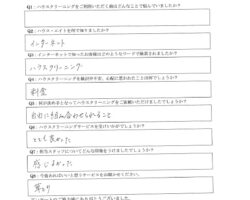 Q1：ハウスクリーニングをご利用いただく前はどんなことで悩んでいましたか？
Q2：ハウス・エイトを何で知りましたか？
インターネット
Q3：インターネットで知ったお客様はどのようなワードで検索されましたか？
ハウスクリーニング
Q4：ハウスクリーニングを検討中不安、心配に思われたことは何でしょうか？
料金
Q5：何が決め手となってハウスクリーニングをご依頼いただけましたでしょうか？
自由に組み合わせられること
Q6：ハウスクリーニングサービスを受けていかがでしょうか？
とても良かった
Q7：担当スタッフについてどんな印象をうけましたでしょうか？
感じよかった
Q8：今後あればいいと思うサービスをお聞かせください。